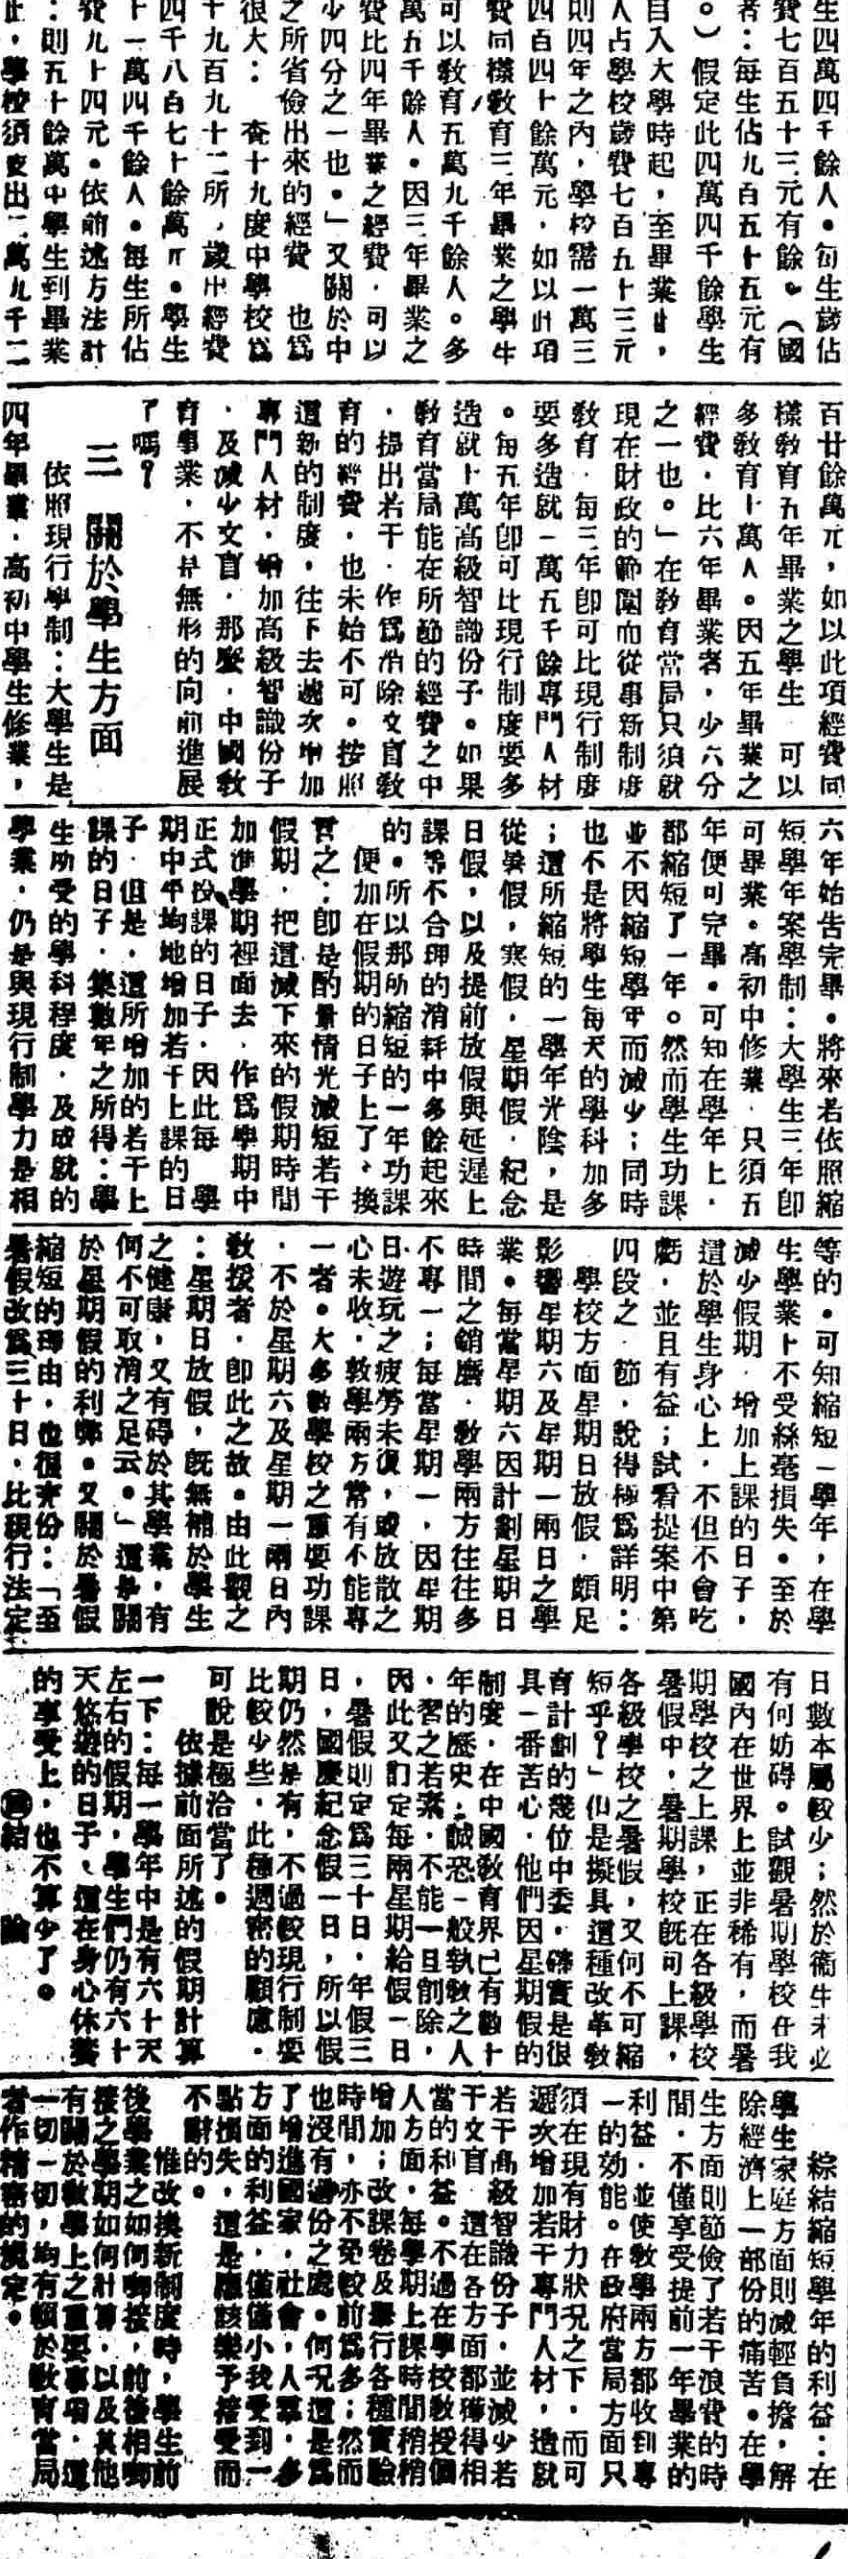 生四萬四千餘人。每生歲佔
費七百五十三元有餘。（國
者：每生佔九百五十五元有
。）假定此四萬四千餘學生
自入大學時起，至畢業止，
人占學校歲費七百五十三元
則四年之內，學校需一萬三
四百四十餘萬元，如以此項
費同樣敎育三年畢業之學生
可以敎育五萬九千餘人。多
萬五千餘人。因三年畢業之
費比四年畢業之經費，可以
少四分之一也。」又關於中
之所省儉出來的經費　也爲
很大：　查十九度中學校爲
十九百九十二所，歲出經費
四千八百七十餘萬元。學生
十一萬四千餘人。每生所佔
費九十四元。依前述方法計
：則五十餘萬中學生到畢業
止，學校須支出二萬九千二
百廿餘萬元，如以此項經費同
樣敎育五年畢業之學生　可以
多敎育十萬人。因五年畢業之
經費，比六年畢業者，少六分
之一也。」在敎育當局只須就
現在財政的範圍而從事新制度
敎育，每三年卽可比現行制度
要多造就一萬五千餘專門人材
。每五年卽可比現行制度要多
造就十萬高級智識份子。如果
敎育當局能在所節的經費之中
，提出若干，作爲消除文盲敎
育的經費，也未始不可。按照
這新的制度，往下去遞次增加
專門人材，增加高級智識份子
，及減少文盲，那麼，中國敎
育事業，不是無形的向前進展
了嗎？
三　關於學生方面
依照現行學制：大學生是
四年畢業，高初中學生修業，
六年始告完畢。將來若依照縮
短學年案學制：大學生三年卽
可畢業。高初中修業　只須五
年便可完畢。可知在學年上，
都縮短了一年。然而學生功課
並不因縮短學年而減少；同時
也不是將學生每天的學科加多
；這所縮短的一學年光陰，是
從暑假，寒假，星期假，紀念
日假，以及提前放假與延遲上
課等不合理的消耗中多餘起來
的。所以那所縮短的一年功課
便加在假期的日子上了、換
言之：卽是酌量情光減短若干
假期，把這減下來的假期時間
加進學期裡面去，作爲學期中
正式授課的日子，因此每一學
期中平均地增加若干上課的日
子，但是，這所增加的若干上
課的日子，集數年之所得：學
生所受的學科程度，及成就的
學業，仍是與現行制學力是相
等的。可知縮短一學年，在學
生學業上不受絲毫損失。至於
減少假期　增加上課的日子，
這於學生身心上，不但不會吃
虧，並且有益；試看提案中第
四段之一節，說得極爲詳明：
學校方面星期日放假，頗足
影響星期六及星期一兩日之學
業。每當星期六因計劃星期日
時間之銷磨，敎學兩方往往多
不專一；每當星期一，因星期
日遊玩之疲勞未復，或放散之
心未收，敎學兩方常有不能專
一者。大多數學校之重要功課
，不於星期六及星期一兩日內
敎授者，卽此之故。由此觀之
：星期日放假，旣無補於學生
之健康，又有碍於其學業，有
何不可取消之足云。」這是關
於星期假的利弊。又關於暑假
縮短的理由，也很充份：「至
暑假改爲三十日，比現行法定
日數本屬較少；然於衞生未必
有何妨碍。試觀暑期學校在我
國內在世界上並非稀有，而暑
期學校之上課，正在各級學校
暑假中，暑期學校旣可上課，
各級學校之暑假，又何不可縮
短乎？」但是擬具這種改革敎
育計劃的幾位中委，確實是很
具一番苦心，他們因星期假的
制度，在中國敎育界已有數十
年的歷史，誠恐一般執敎之人
，習之若素，不能一旦削除，
因此又訂定每兩星期給假一日
，暑假則定爲三十日，年假三
日，國慶紀念假一日，所以假
期仍然是有，不過較現行制要
比較少些，此種週密的顧慮，
可說是極洽當了。
依據前面所述的假期計算
一下：每一學年中是有六十天
左右的假期，學生們仍有六十
天悠遊的日子、這在身心休養
的享受上，也不算少了。
結　論
綜結縮短學年的利益：在
學生家庭方面則減輕負擔，解
除經濟上一部份的痛苦。在學
生方面則節儉了若干浪費的時
間，不僅享受提前一年畢業的
利益，並使敎學兩方都收到專
一的効能。在政府當局方面只
須在現有財力狀況之下，而可
遞次增加若干專門人材，造就
若干高級智識份子，並減少若
干文盲　這在各方面都獲得相
當的利益。不過在學校敎授個
人方面，每學期上課時間稍稍
增加；改課卷及舉行各種實驗
時間，亦不免較前爲多；然而
也沒有過份之處。何況這是爲
了增進國家，社會，人羣，多
方面的利益，僅僅小我受到一
點損失，這是應該樂予擔受而
不辭的。
惟改換新制度時，學生前
後學業之如何啣接，前後相啣
接之學期如何計算，以及其他
有關於敎學上之重要事項，這
一切一切，均有賴於敎育當局
者作精密的規定。